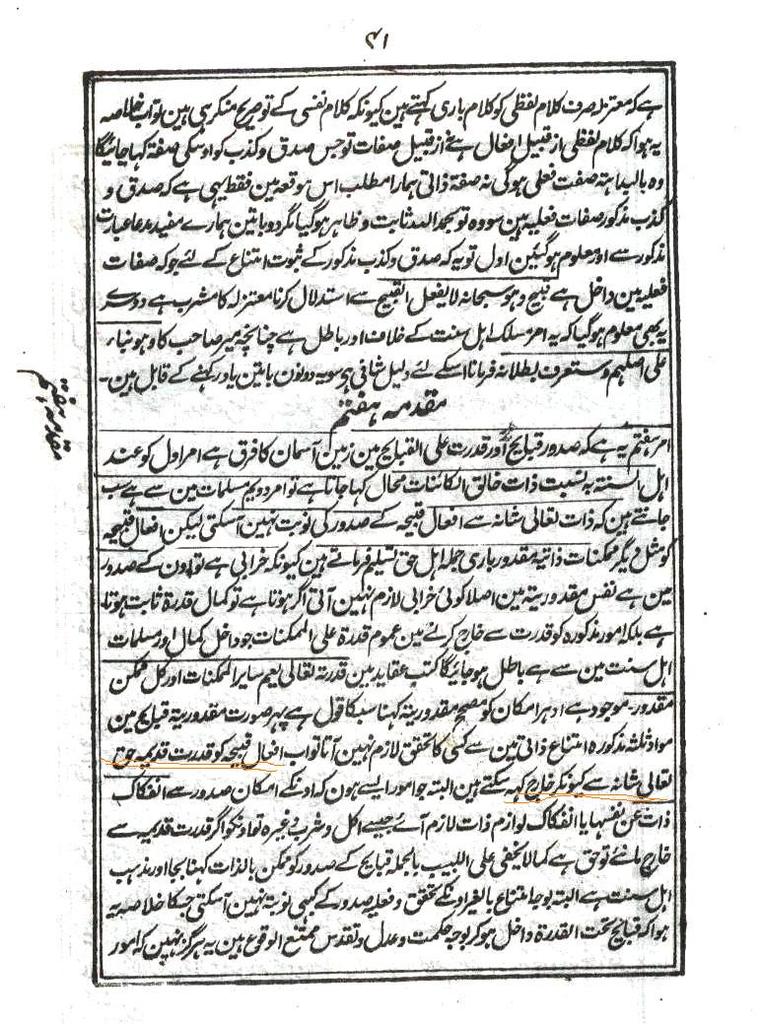 ۴۱
ہے کہ معتزلہ صرف کلام لفظی کو کلام باری کہتے ہین کیونکہ کلام نفسی کے تو صریح منکر ہی ہین تو اب خلاصہ
یہ ہوا کہ کلام لفظی از قبیل افعال ہے نہ از قبیل صفات تو جس صدق و کذب کو اوسکی صفۃ کہا جائیگا
وہ بالبداہتہ صفت فعلی ہوگی نہ صفۃ ذاتی ہمارا مطلب اس موقعہ مین فقط یہی ہے کہ صدق و
کذب مذکور صفات فعلیہ ہین سو وہ تو بحمد اللہ ثابت و ظاہر ہوگیا مگر دو باتین ہمارے مفید مدعا عبارت
مذکور سے اور معلوم ہوگئین اول تو یہ کہ صدق و کذب مذکور کے ثبوت امتناع کے لئے جو کہ صفات
فعلیہ مین داخل ہے قبیح و ہو سبحانہ لا یفعل القبیح سے استدلال کرنا معتزلہ کا مشرب ہے دوسر
یہ بھی معلوم ہوگیا کہ یہ امر مسلک اہل سنت کے خلاف اور باطل ہے چنانچہ میر صاحب کا و ہو بناء
علی اصلہم و ستعرف بطلانہ فرمانا اسکے لئے دلیل شافی ہی سو یہ دونون باتین یاد رکھنے کے قابل ہین۔
مقدمہ ہفتم
امر ہفتم یہ ہے کہ صدور قبایح اور قدرت علی القبایح مین زمین آسمان کا فرق ہے امر اول کو عند
اہل السنۃ بہ نسبت ذات خالق الکائنات محال کہا جاتا ہے تو امر دویم مسلمات مین سے ہے سب
جانتے ہین کہ ذات تعالی شانہ سے افعال قبیحہ کے صدور کی نوبت نہین آسکتی لیکن افعال قبیحہ
کو مثل دیگر ممکنات ذاتیہ مقدور باری جملہ اہل حق تسلیم فرماتے ہین کیونکہ خرابی ہے تو اون کے صدور
مین ہے نفس مقدوریۃ مین اصلا کوئی خرابی لازم نہین آتی اگر ہوتا ہے تو کمال قدرۃ ثابت ہوتا
ہے بلکہ امور مذکورہ کو قدرت سے خارج کرنے مین عموم قدرۃ علی الممکنات جو داخل کمال اور مسلمات
اہل سنت مین سے ہے باطل ہو جائیگا کتب عقاید مین قدرتہ تعالی یعم سایر الممکنات اور کل ممکن
مقدور۔ موجود ہے ادہر امکان کو مصحح مقدوریۃ کہنا سبکا قول ہے بہر صورت مقدوریۃ قبایح مین
مواد ثلثہ مذکورہ امتناع ذاتی مین سے کسی کا تحقق لازم نہین آتا تو اب افعال قبیحہ کو قدرت قدیمہ حق
تعالی شانہ سے کیونکر خارج کہہ سکتے ہین البتہ جو امور ایسے ہون کہ اونکے امکان صدور سے انفکاک
ذات عن نفسہا یا انفکاک لوازم ذات لازم آئے جیسے اکل و شرب وغیرہ تو اونکو اگر قدرت قدیمہ سے
خارج مانئے تو حق ہے کما لا یخفی علی اللبیب بالجملہ قبایح کے صدور کو ممکن بالذات کہنا بجا اور مذہب
اہل سنت ہے البتہ بوجہ امتناع بالغیر اونکے تحقق و فعلیۃ صدور کے کبھی نوبۃ نہین آسکتی جسکا خلاصہ یہ
ہوا کہ قبایح تحت القدرۃ داخل ہو کر بوجہ حکمت و عدل و تقدس ممتنع الوقوع ہین یہ ہرگز نہین کہ امور